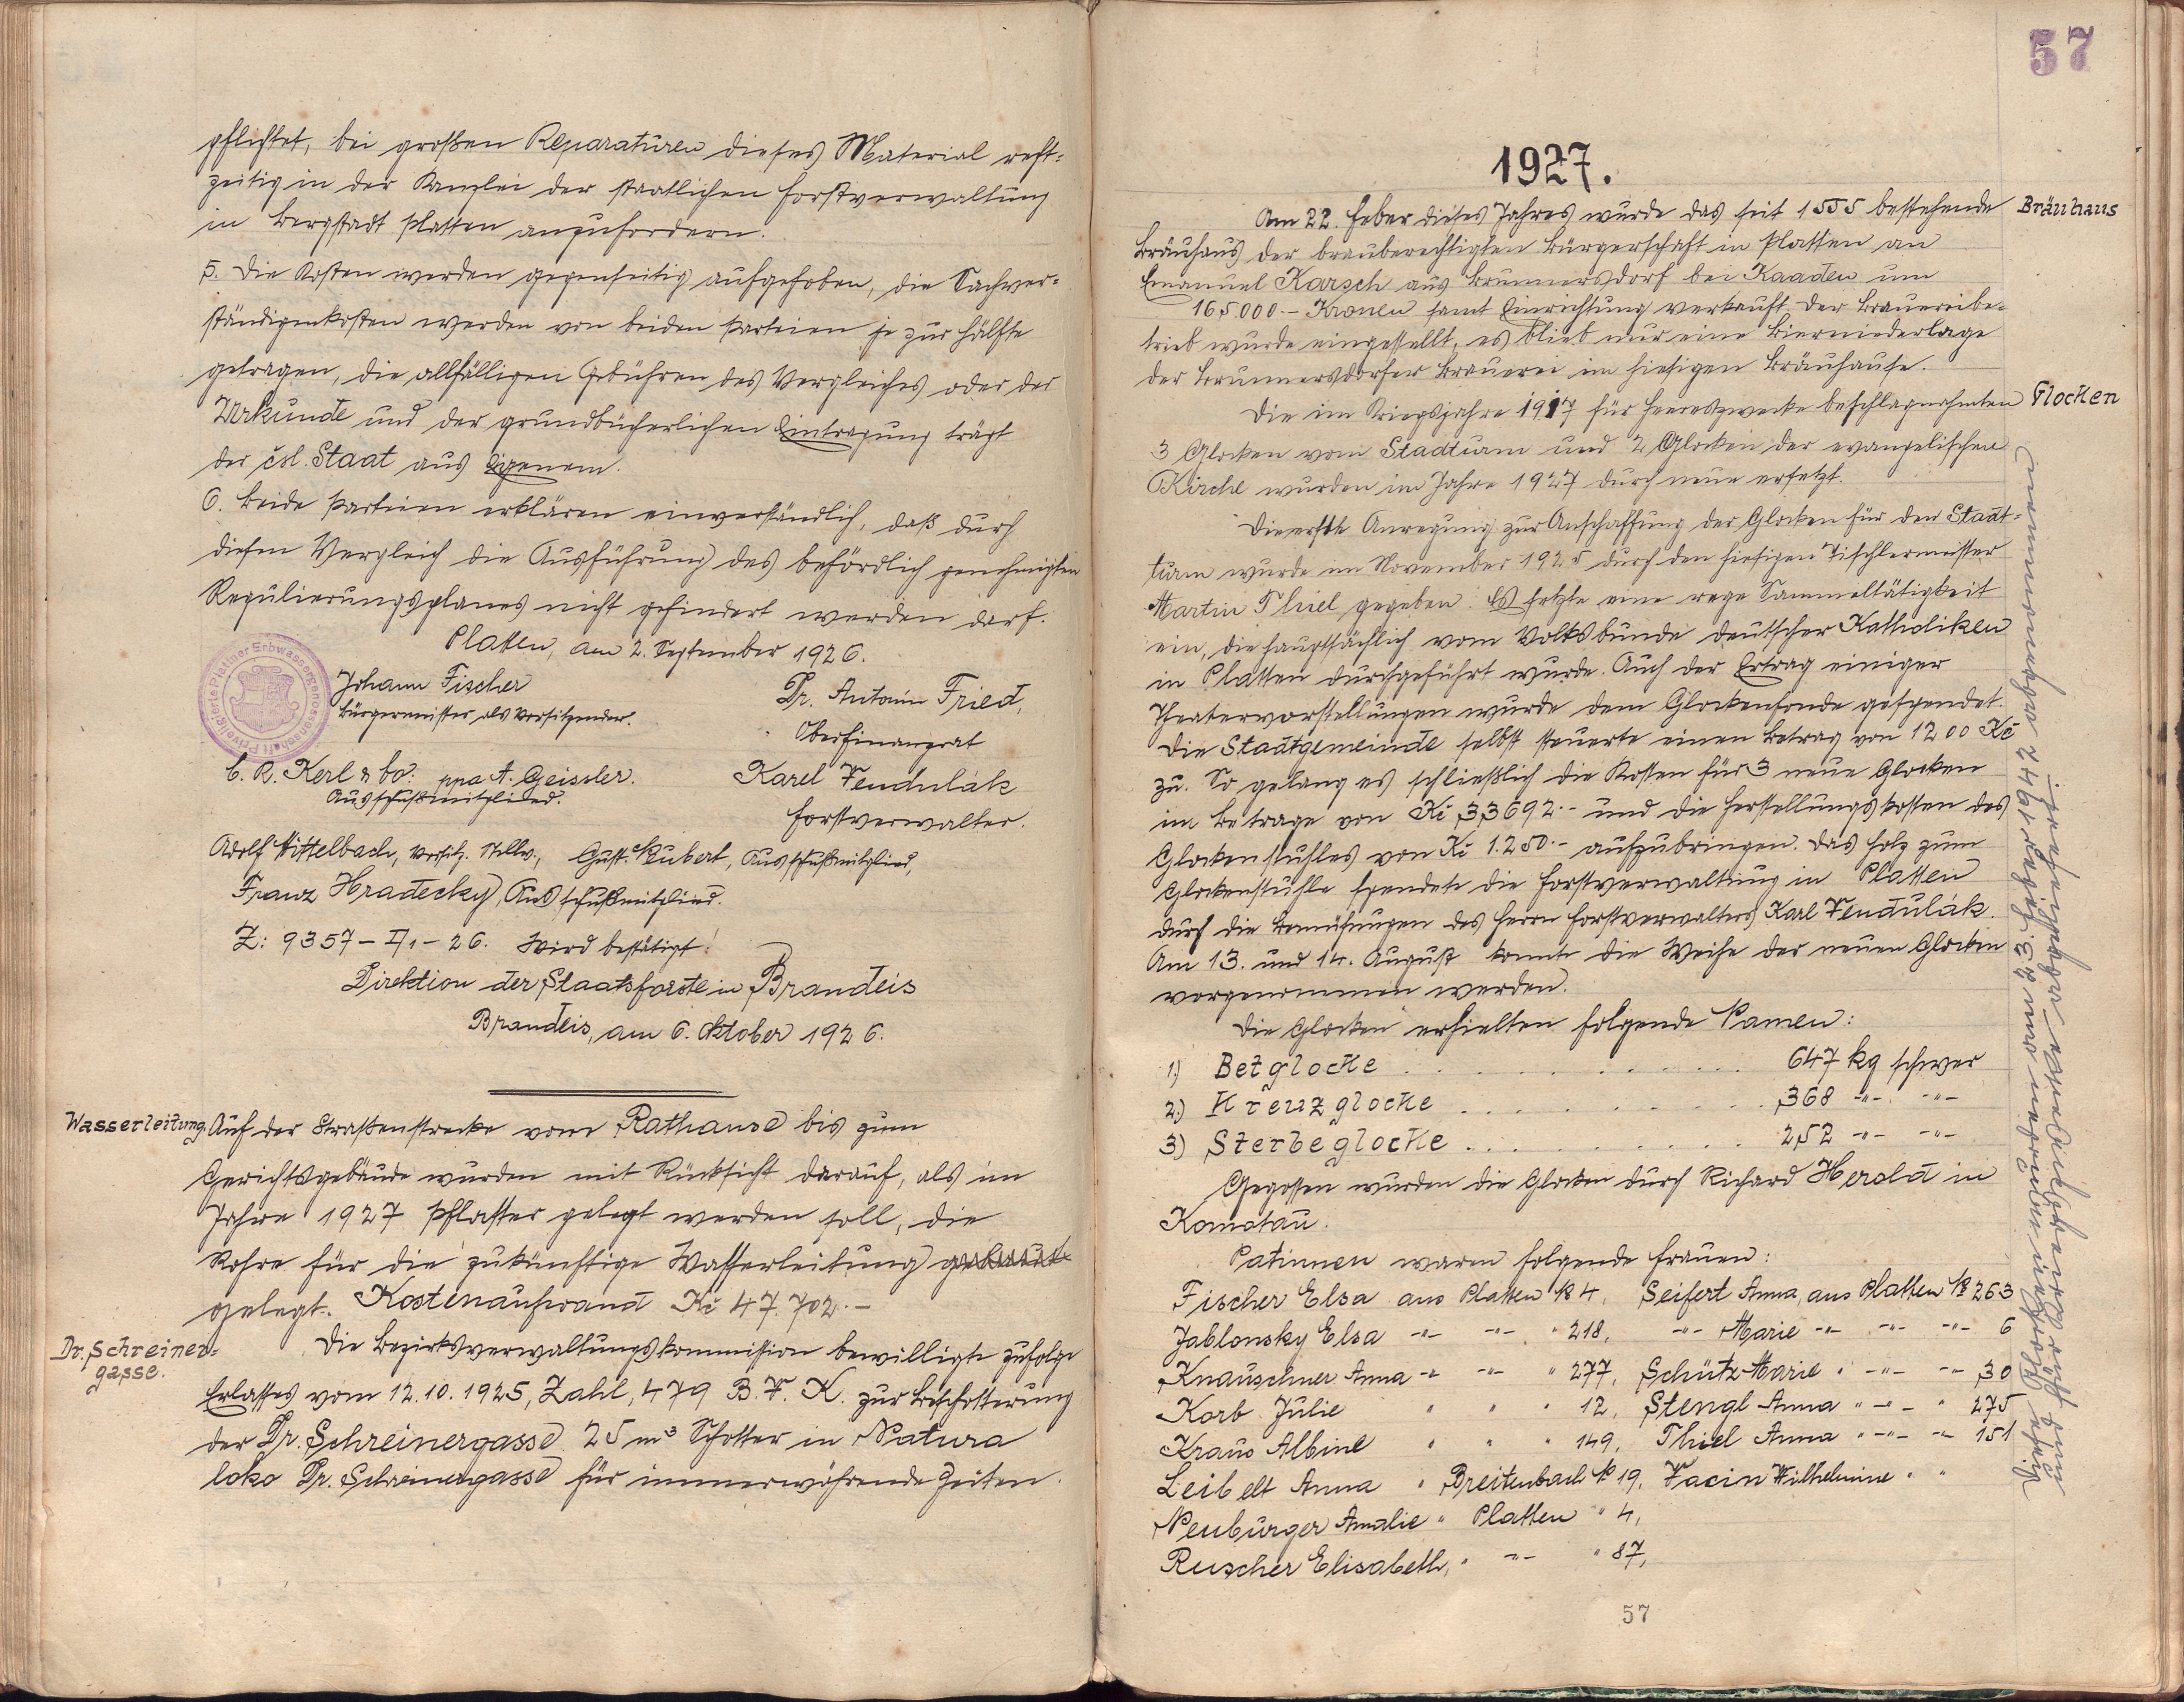 pflichtet, bei großen Reparaturen dieses Material recht=
zeitig in der Kanzlei der staatlichen Forstverwaltung
in Bergstadt Platten anzufordern.
5. Die Kosten werden gegenseitig aufgehoben, die Sachver=
ständigenkosten werden von beiden Parteien je zur Hälfte
getragen, die allfälligen Gebühren des Vergleiches oder der
Urkunde und der grundbücherlichen Eintragung trägt
der čsl. Staat aus Eigenem.
6. Beide Parteien erklären einverständlich, daß durch
diesen Vergleich die Ausführung des behördlich genehmigten
Regulierungsplanes nicht gehindert werden darf.
Platten, am 2. September 1926.
Privilegierte Plattner Erbwassergenossenschaft
Johann Fischer
Bürgermeister als Vorsitzender.
Dr. Antonin Fried,
Oberfinanzrat
C. R. Kerl & Co: ppa A. Geissler.
Ausschußmitglied.
Karel Vendulák
Forstverwalter.
Adolf Hittelbach, Vorsitz. Stellv., Gust. Kubert, Ausschußmitglied,
Franz Hradecky, Ausschußmitglied.
Z: 9357-II/1-26. Wird bestätigt!
Direktion der Staatsforste in Brandeis
Brandeis, am 6. Oktober 1926.
Wasserleitung. Auf der Straßenstrecke vom Rathause bis zum
Gerichtsgebäude wurden mit Rücksicht darauf, als im
Jahre 1927 Pflaster gelegt werden soll, die
Rohre für die zukünftige Wasserleitung
gelegt. Kostenaufwand Kč 47.702.-
Dr. Schreiner=
gasse.
Die Bezirksverwaltungskommission bewilligte zufolge
Erlasses vom 12.10.1925, Zahl, 479 B.V.K. zur Beschotterung
der Dr. Schreinergasse 25 m³ Schotter in Natura
loko Dr. Schreinergasse für immerwährende Zeiten.
57
1927.
Am 22. Feber dieses Jahres wurde das seit 1555 bestehende Bräuhaus
Bräuhaus der brauberechtigten Bürgerschaft in Platten an
Emanuel Karsch aus Brunnersdorf bei Kaaden um
165.000.- Kronen samt Einrichtung verkauft. Der Brauereibe=
trieb wurde eingestellt, es blieb nur eine Bierniederlage
der Brunnersdorfer Brauerei im hiesigen Bräuhause.
Die im Kriegsjahre 1917 für Heereszwecke beschlagnahmten Glocken
3 Glocken vom Stadturm und 2 Glocken der evangelischen
Kirche wurden im Jahre 1927 durch neue ersetzt.
Die erste Anregung zur Anschaffung der Glocken für den Stadt=
turm wurde im November 1925 durch den hiesigen Tischlermeister
Martin Thiel gegeben. Es setzte eine rege Sammeltätigkeit
ein, die hauptsächlich vom Volksbunde deutscher Katholiken
in Platten durchgeführt wurde. Auch der Ertrag einiger
Theatervorstellungen wurde dem Glockenfonde gespendet.
Die Stadtgemeinde selbst steuerte einen Betrag von 1200 Kč
zu. So gelang es schließlich die Kosten für 3 neue Glocken
im Betrage von Kč 33692.- und die Herstellungskosten des
Glockenstuhles von Kč 1.250.- aufzubringen. Das Holz zum
Glockenstuhle spendete die Forstverwaltung in Platten
durch die Bemühungen des Herrn Forstverwalters Karl Vendulák.
Am 13. und 14. August konnte die Weihe der neuen Glocken
vorgenommen werden.
Die Glocken erhielten folgende Namen:
1.) Betglocke . . . . . . . . . . 647 kg schwer
2.) Kreuzglocke . . . . . . . . . 368 -"- -"-
3) Sterbeglocke . . . . . . . . . 252 -"- -"-
Gegossen wurden die Glocken durch Richard Herold in
Komotau.
Patinnen waren folgende Frauen:
Fischer Elsa aus Platten № 4, Seifert Anna, aus Platten № 263
Jablonsky Elsa -"- -"- " 218, -"- Marie -"- -"- -"- 6
Knauschner Anna -"- -"- " 277, Schütz Marie " -"- -"- 30
Korb Julie " " " 12, Stengl Anna " -"- " 275
Kraus Albine " " " 149, Thiel Anna " -"- -"- 151
Leibelt Anna " Breitenbach № 19, Vacin Wilhelmine " "
Neubürger Amalie " Platten " 4,
Ruscher Elisabeth, " -"- " 87,
57